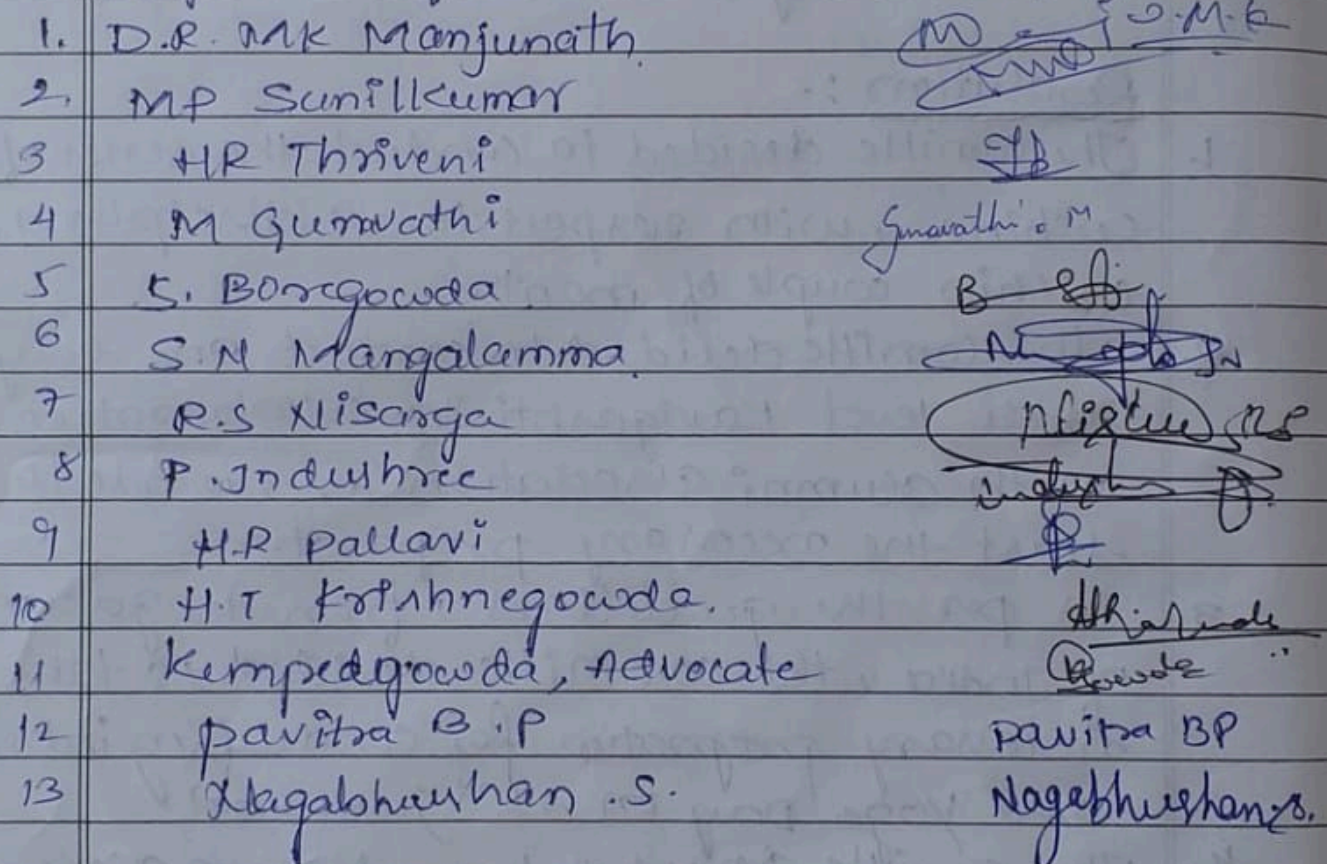 1. D.R. MK Manjunath J.M.K
2. MP Sunilkumar
3 HR Thriveni
4 M Gunavathi Gunavathi.M
5 S. Boregowda B
6 S.N Mangalamma
7 R.S Nisarga
8 P. Indushree
9 H.R Pallavi
10 H.T Krishnegowda.
11 Kempedgowda, Advocate Gowda
12 Pavitra B.P Pavitra BP
13 Nagabhushan .S. Nagabhushan.S.